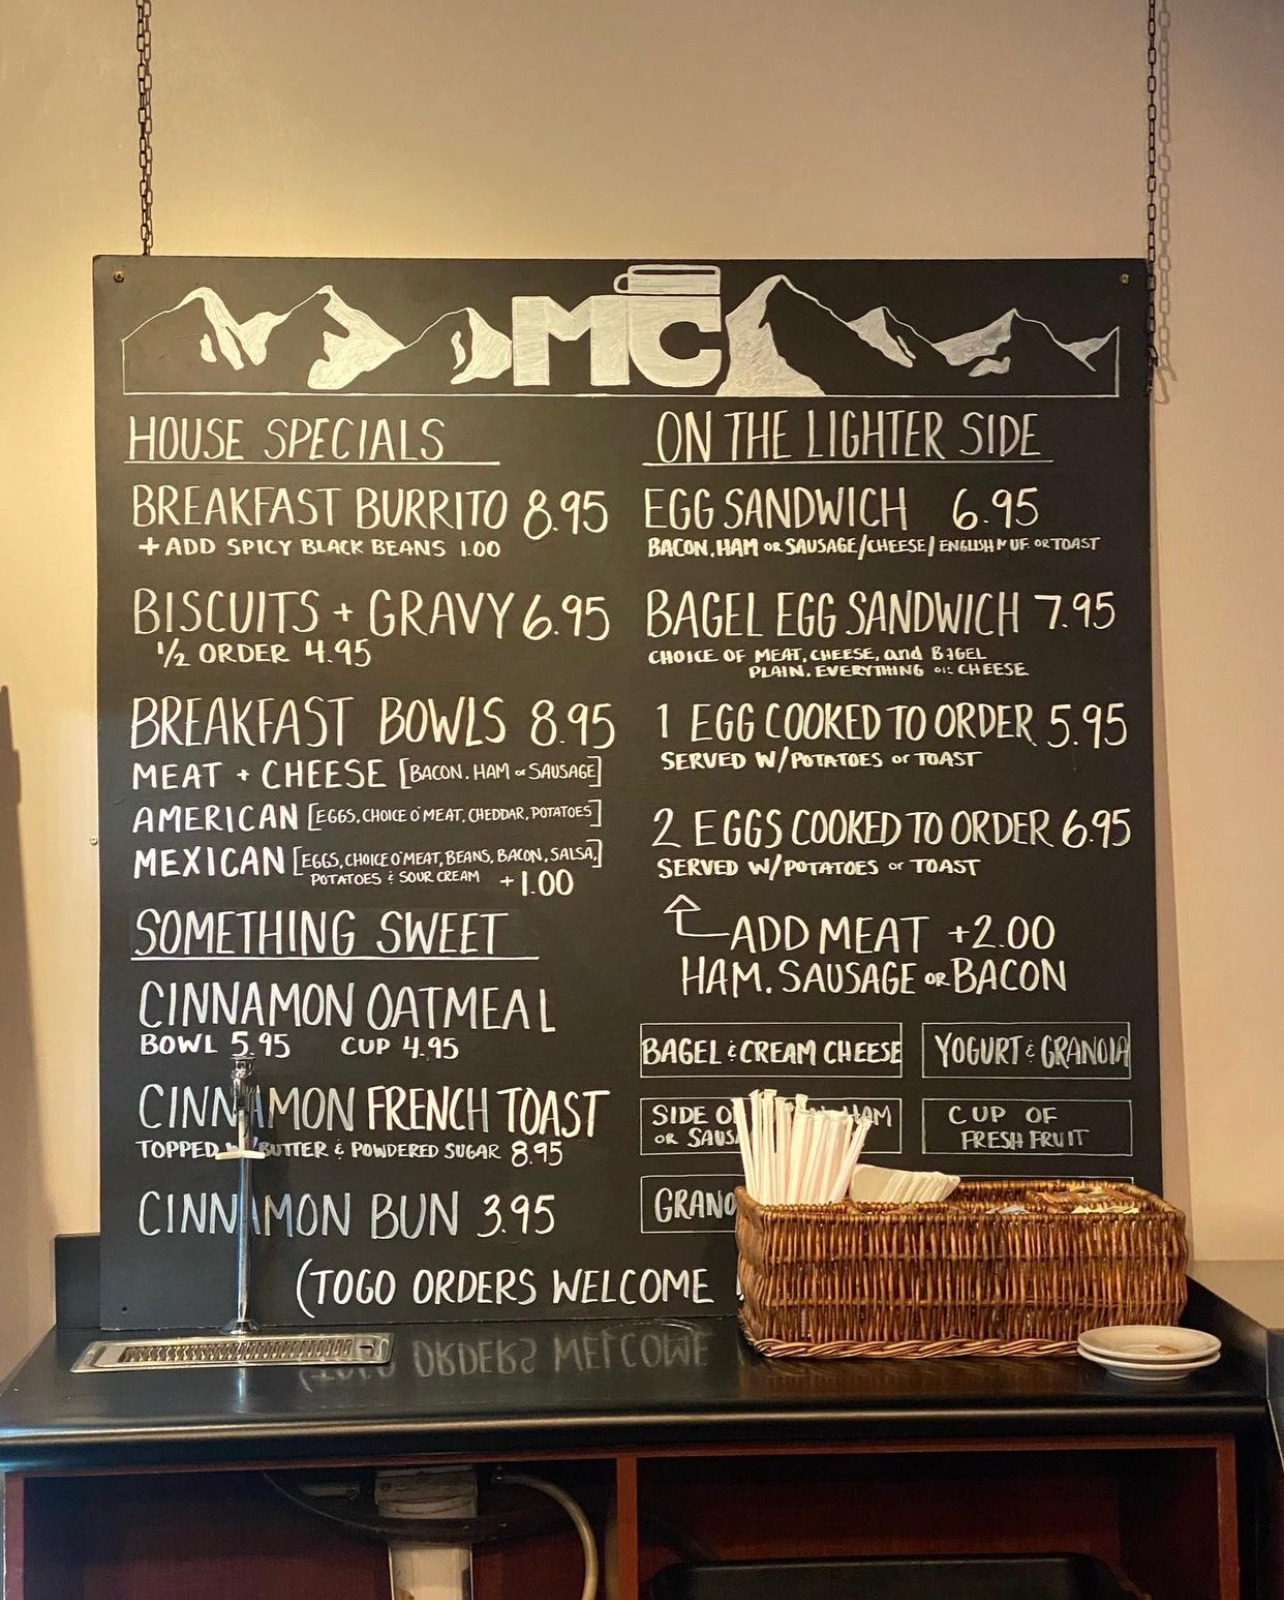 MC
HOUSE SPECIALS
BREAKFAST BURRITO 8.95
+ ADD SPICY BLACK BEANS 1.00
BISCUITS + GRAVY 6.95
1/2 ORDER 4.95
BREAKFAST BOWLS 8.95
MEAT + CHEESE [BACON. HAM or SAUSAGE]
AMERICAN [EGGS, CHOICE O' MEAT, CHEDDAR, POTATOES]
MEXICAN [EGGS, CHOICE O' MEAT, BEANS, BACON, SALSA,
POTATOES & SOUR CREAM +1.00
SOMETHING SWEET
CINNAMON OATMEAL
BOWL 5.95 CUP 4.95
CINNAMON FRENCH TOAST
TOPPED BUTTER & POWDERED SUGAR 8.95
CINNAMON BUN 3.95
ON THE LIGHTER SIDE
EGG SANDWICH 6.95
BACON, HAM or SAUSAGE/CHEESE/ENGLISH MUF. OR TOAST
BAGEL EGG SANDWICH 7.95
CHOICE OF MEAT, CHEESE, and BAGEL
PLAIN, EVERYTHING or CHEESE
1 EGG COOKED TO ORDER 5.95
SERVED W/POTATOES or TOAST
2 EGGS COOKED TO ORDER 6.95
SERVED W/POTATOES or TOAST
ADD MEAT +2.00
HAM, SAUSAGE OR BACON
BAGEL & CREAM CHEESE
YOGURT & GRANOLA
SIDE HAM
OR
CUP OF
FRESH FRUIT
(TOGO ORDERS WELCOME